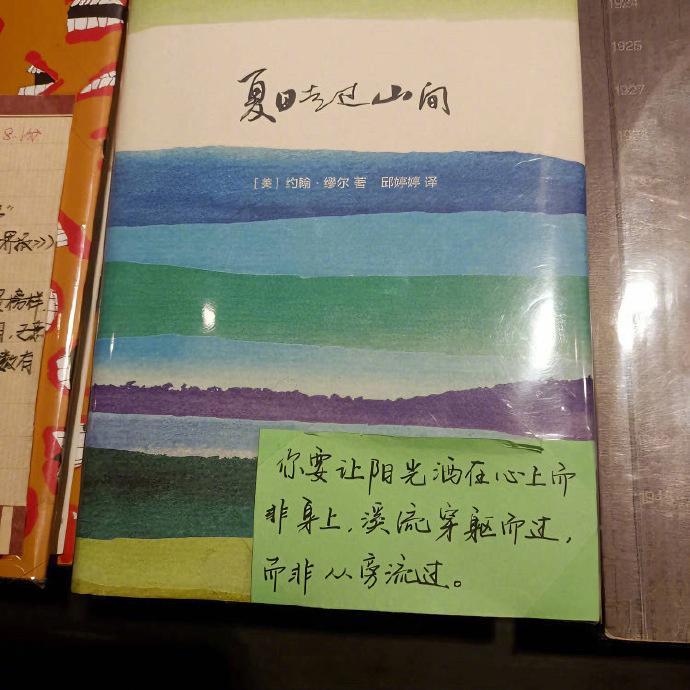 夏日走过山间
[美] 约翰·缪尔 著 邱婷婷 译
你要让阳光洒在心上而
非身上,溪流穿躯而过,
而非从旁流过。
榜样
数有
1924
1925
1927